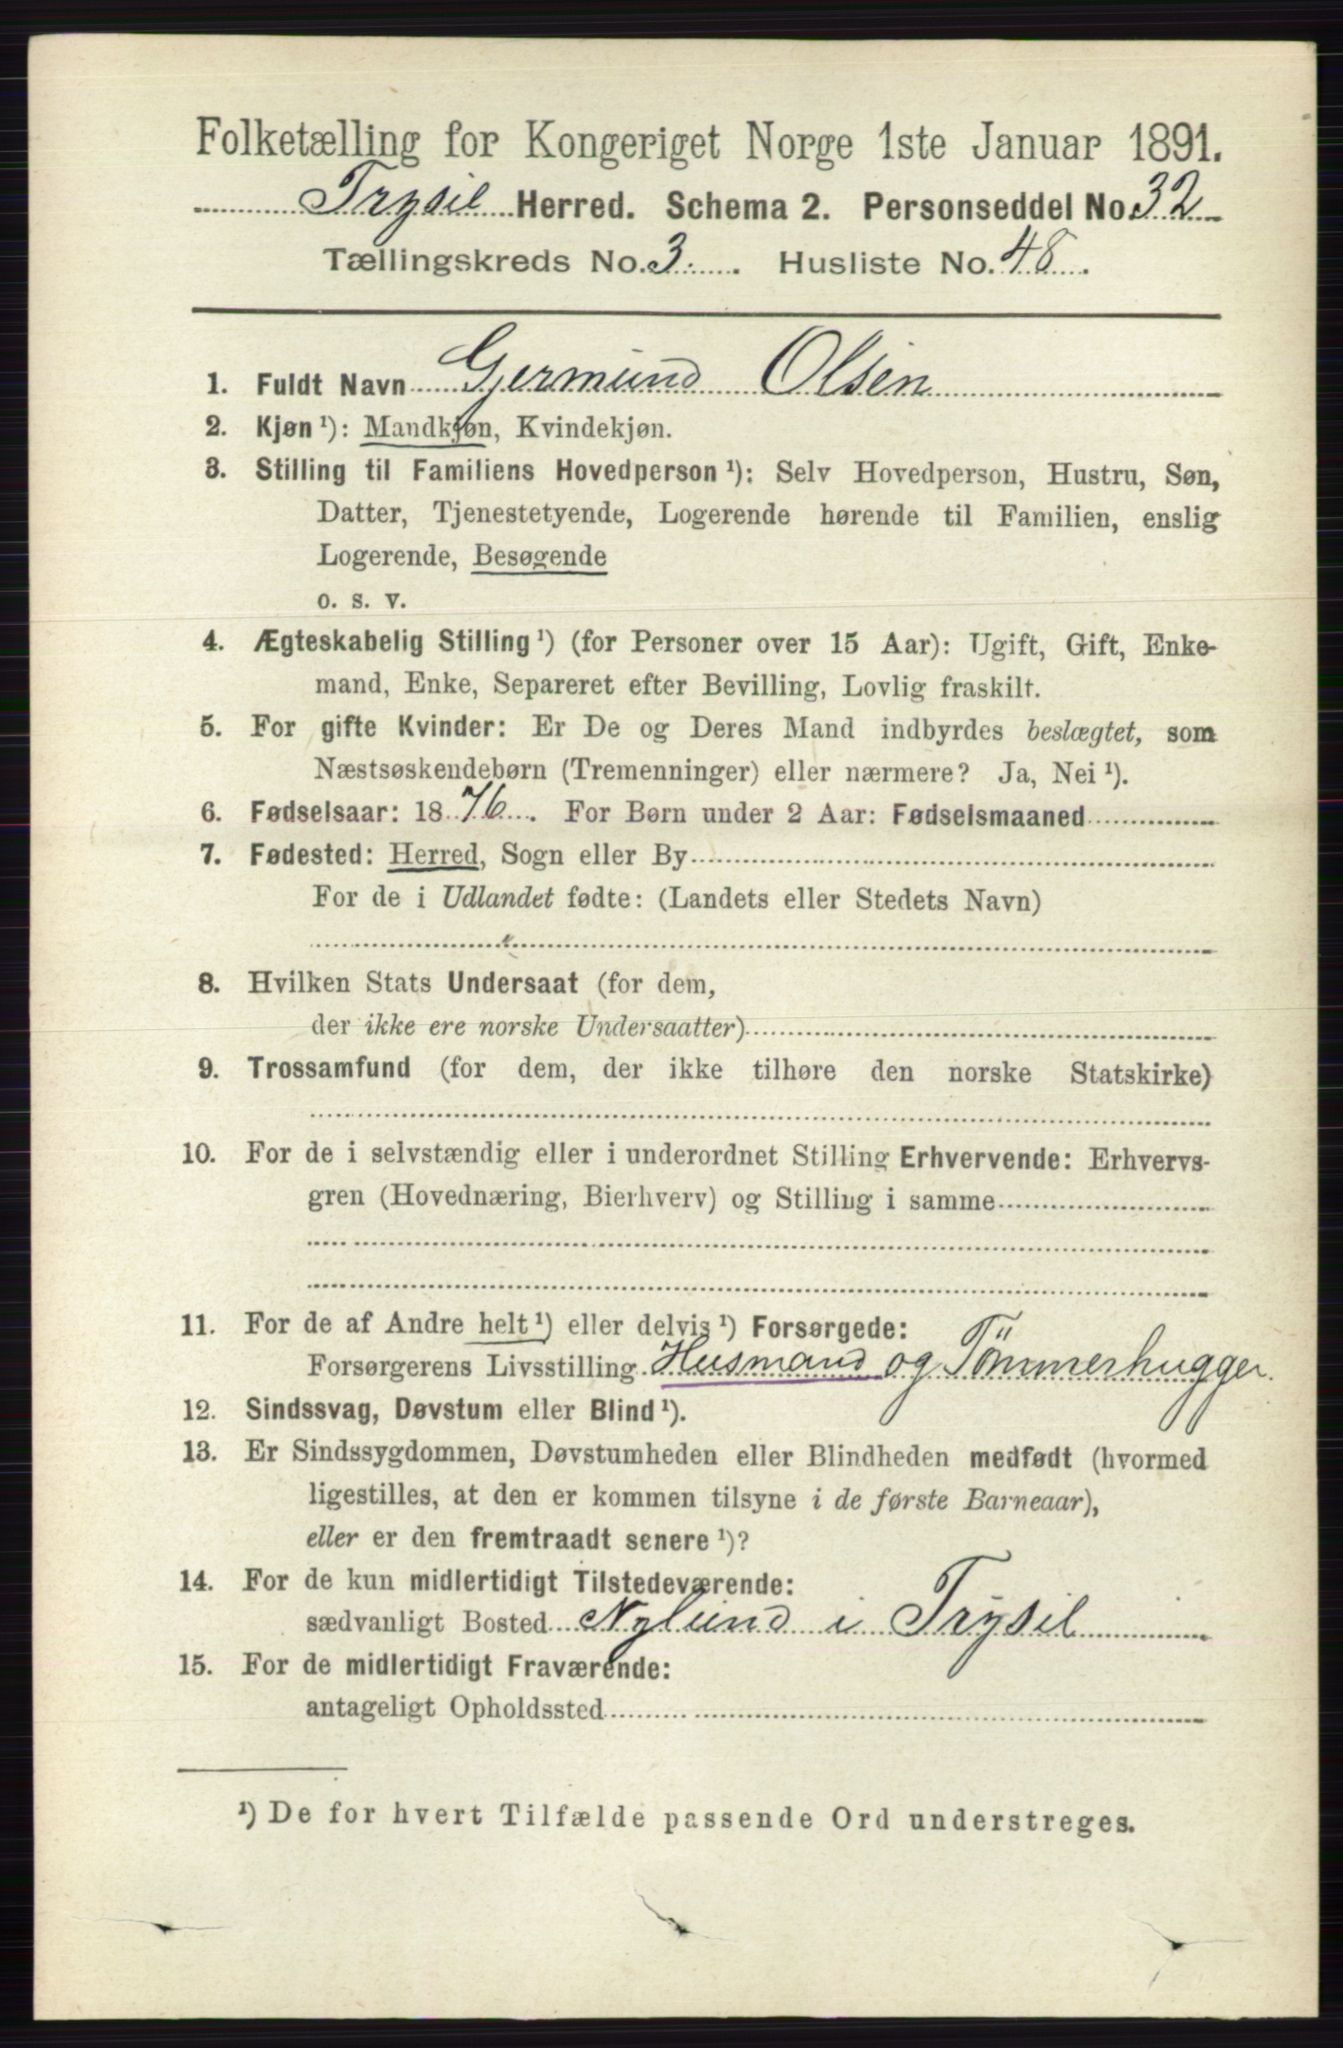 Folketælling for Kongeriget Norge 1ste Januar 1891.
Trysil Herred. Schema 2. Personseddel No. 32
Tællingskreds No. 3. Husliste No. 48.
1. Fuldt Navn Germund Olsen
2. Kjøn ¹): Mandkjøn, Kvindekjøn.
3. Stilling til Familiens Hovedperson ¹): Selv Hovedperson, Hustru, Søn,
Datter, Tjenestetyende, Logerende hørende til Familien, enslig
Logerende, Besøgende
o. s. v.
4. Ægteskabelig Stilling ¹) (for Personer over 15 Aar): Ugift, Gift, Enke-
mand, Enke, Separeret efter Bevilling, Lovlig fraskilt.
5. For gifte Kvinder: Er De og Deres Mand indbyrdes beslægtet, som
Næstsøskendebørn (Tremenninger) eller nærmere? Ja, Nei ¹).
6. Fødselsaar: 1876. For Børn under 2 Aar: Fødselsmaaned
7. Fødested: Herred, Sogn eller By
For de i Udlandet fødte: (Landets eller Stedets Navn)
8. Hvilken Stats Undersaat (for dem,
der ikke ere norske Undersaatter)
9. Trossamfund (for dem, der ikke tilhøre den norske Statskirke)
10. For de i selvstændig eller i underordnet Stilling Erhvervende: Erhvervs-
gren (Hovednæring, Bierhverv) og Stilling i samme
11. For de af Andre helt ¹) eller delvis ¹) Forsørgede:
Forsørgerens Livsstilling Husmand og Tömmerhugger.
12. Sindssvag, Døvstum eller Blind ¹).
13. Er Sindssygdommen, Døvstumheden eller Blindheden medfødt (hvormed
ligestilles, at den er kommen tilsyne i de første Barneaar),
eller er den fremtraadt senere ¹)?
14. For de kun midlertidigt Tilstedeværende:
sædvanligt Bosted Nylund i Trysil
15. For de midlertidigt Fraværende:
antageligt Opholdssted
¹) De for hvert Tilfælde passende Ord understreges.